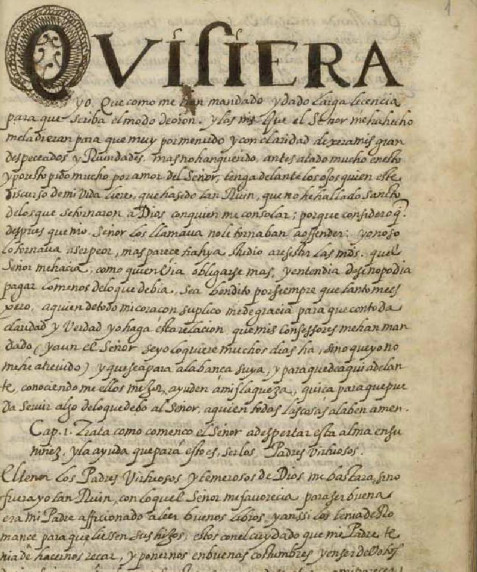 QVISIERA
yo, Que como me han mandado y dado Larga licencia
para que escriba el modo de oron. y las mrds que el Señor me ha hecho
me la dieran para que muy por menudo y con claridad dixera mis gran
des peccados y Ruindades. mas no han querido, antes atado mucho en ello
y por esto pido mucho por amor del Señor, tenga delante los ojos quien este
discurso de mi vida leiere, que ha sido tan Ruin, que no he hallado Sancto
de los que se tornaron a Dios con quien me consolar: porque considero q
despues que nro Señor los llamava no le tornaban a offender: yo no so
lo tornava a ser peor, mas parece trahya studio a resistir las mds. que el
Señor me hacia: como quien via obligarse mas, y entendia de si no podia
pagar lo menos de lo que debia. Sea bendito por siempre que tanto me es
pero. a quien de todo mi coracon suplico me de gracia para que con toda
claridad y Verdad yo haga esta relacion que mis Confessores me han man
dado (y aun el Señor se yo lo quiere muchos dias ha, sino que yo no
me he atrevido) y que sea para alabança suya, y para que de aqui adelan
te, conociendo me ellos mejor, ayuden a mi flaqueza, quiça para que pue
da Servir algo de lo que debo al Señor, a quien todas las cosas alaben amen.
Cap. 1. Trata como comenco el Señor a despertar esta alma en su
niñez, y la ayuda que para esto es, ser los Padres virtuosos.
El tener los Padres Virtuosos y temerosos de Dios me bastara, sino
fuera yo tan Ruin, con lo que el Señor me favorecia para ser buena
era mi Padre afficionado a leer buenos libros, y anssi los tenia de Ro
mance para que leiessen sus hijos, estos con el cuydado que mi Padre te
nia de hacernos reçar, y ponernos en buenas costumbres